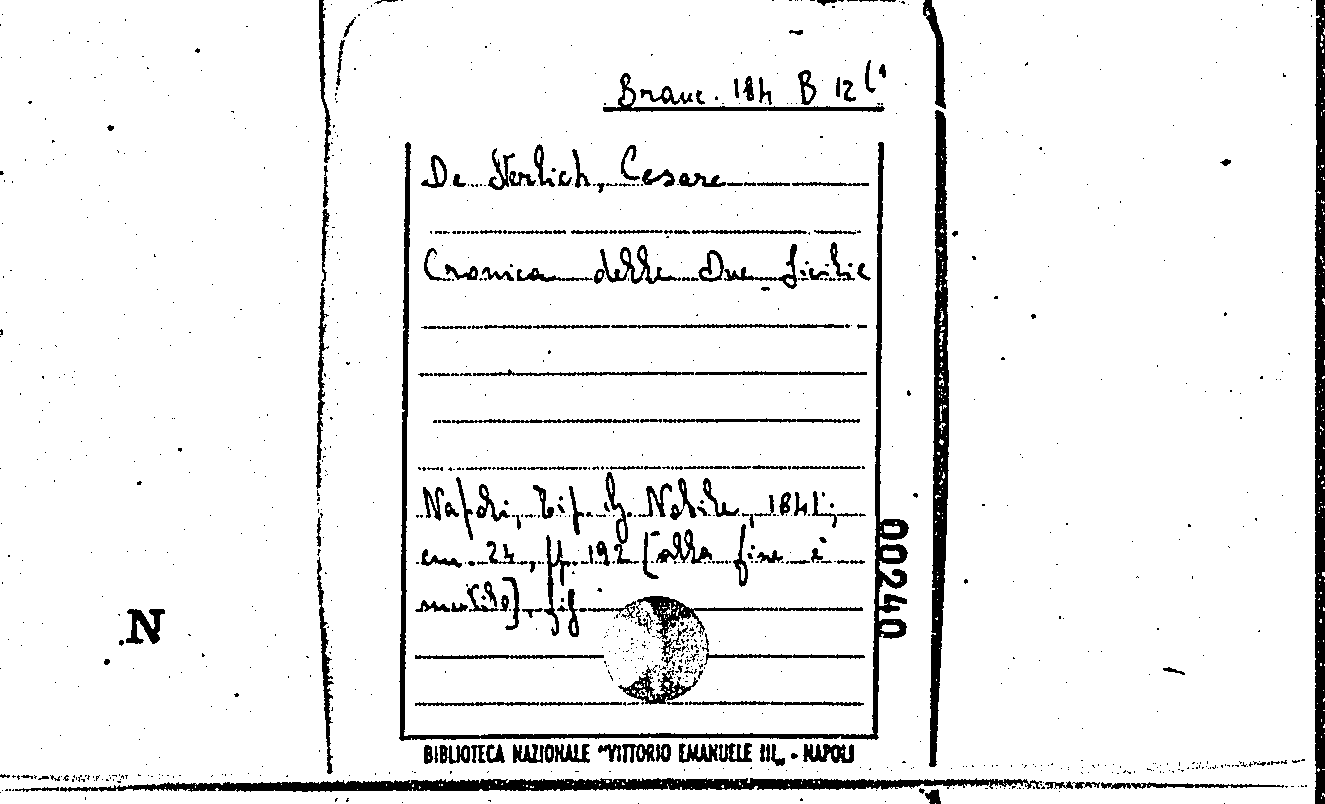 Branc. 184 B 12 (1
De Sterlich, Cesare
Cronica delle Due Sicilie
Napoli, Tip. G. Nobile, 1841;
cm. 24, pp. 192 [alla fine è
mutilo]. fig
00240
N
BIBLIOTECA NAZIONALE "VITTORIO EMANUELE III„ - NAPOLI